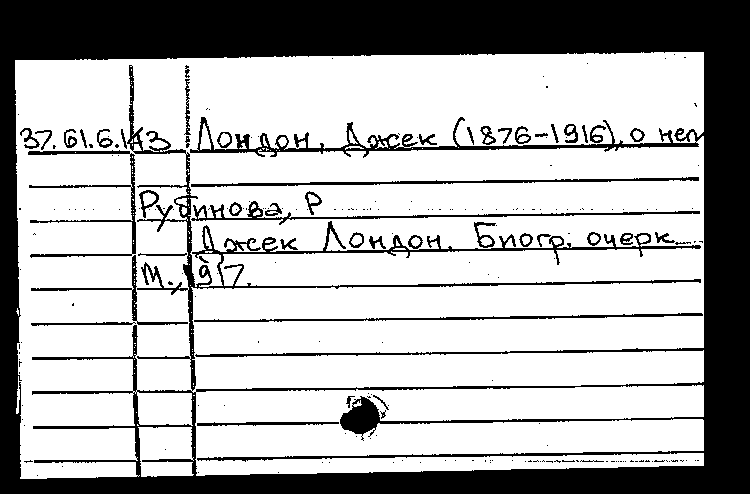 37.61.6.143 Лондон, Джек (1876-1916), о нем
Рубинова, Р
Джек Лондон. Биогр. очерк.
М., 1917.